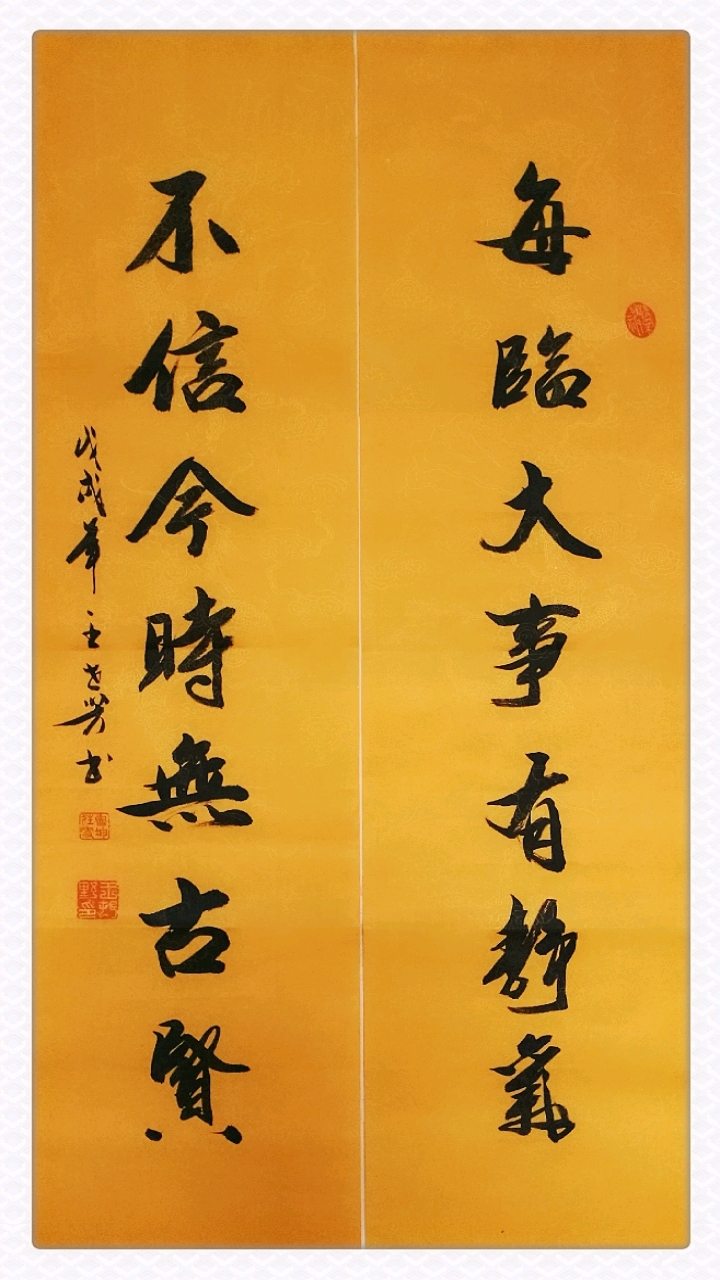 每臨大事有靜氣
不信今時無古賢
戊戌年王世芳書